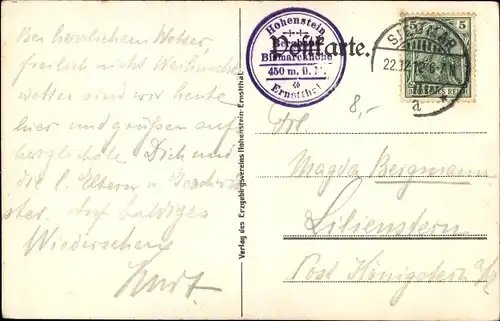 Bei herrlichem Wetter,
freilich nicht Weihnachts-
wetter sind wir heute
hier und grüßen auf
herzlichste Dich und
die l. Eltern u. Geschwi-
ster. Auf baldiges
Wiedersehen
Kurt
Verlag des Erzgebirgsvereins Hohenstein-Ernstthal.
Hohenstein
Bismarckhöhe
450 m. ü.
Ernstthal
Postkarte.
5
22.12.
a
REICH
8,-
Frl
Magda Bergmann
Lilienstein
Post Königstein a/E